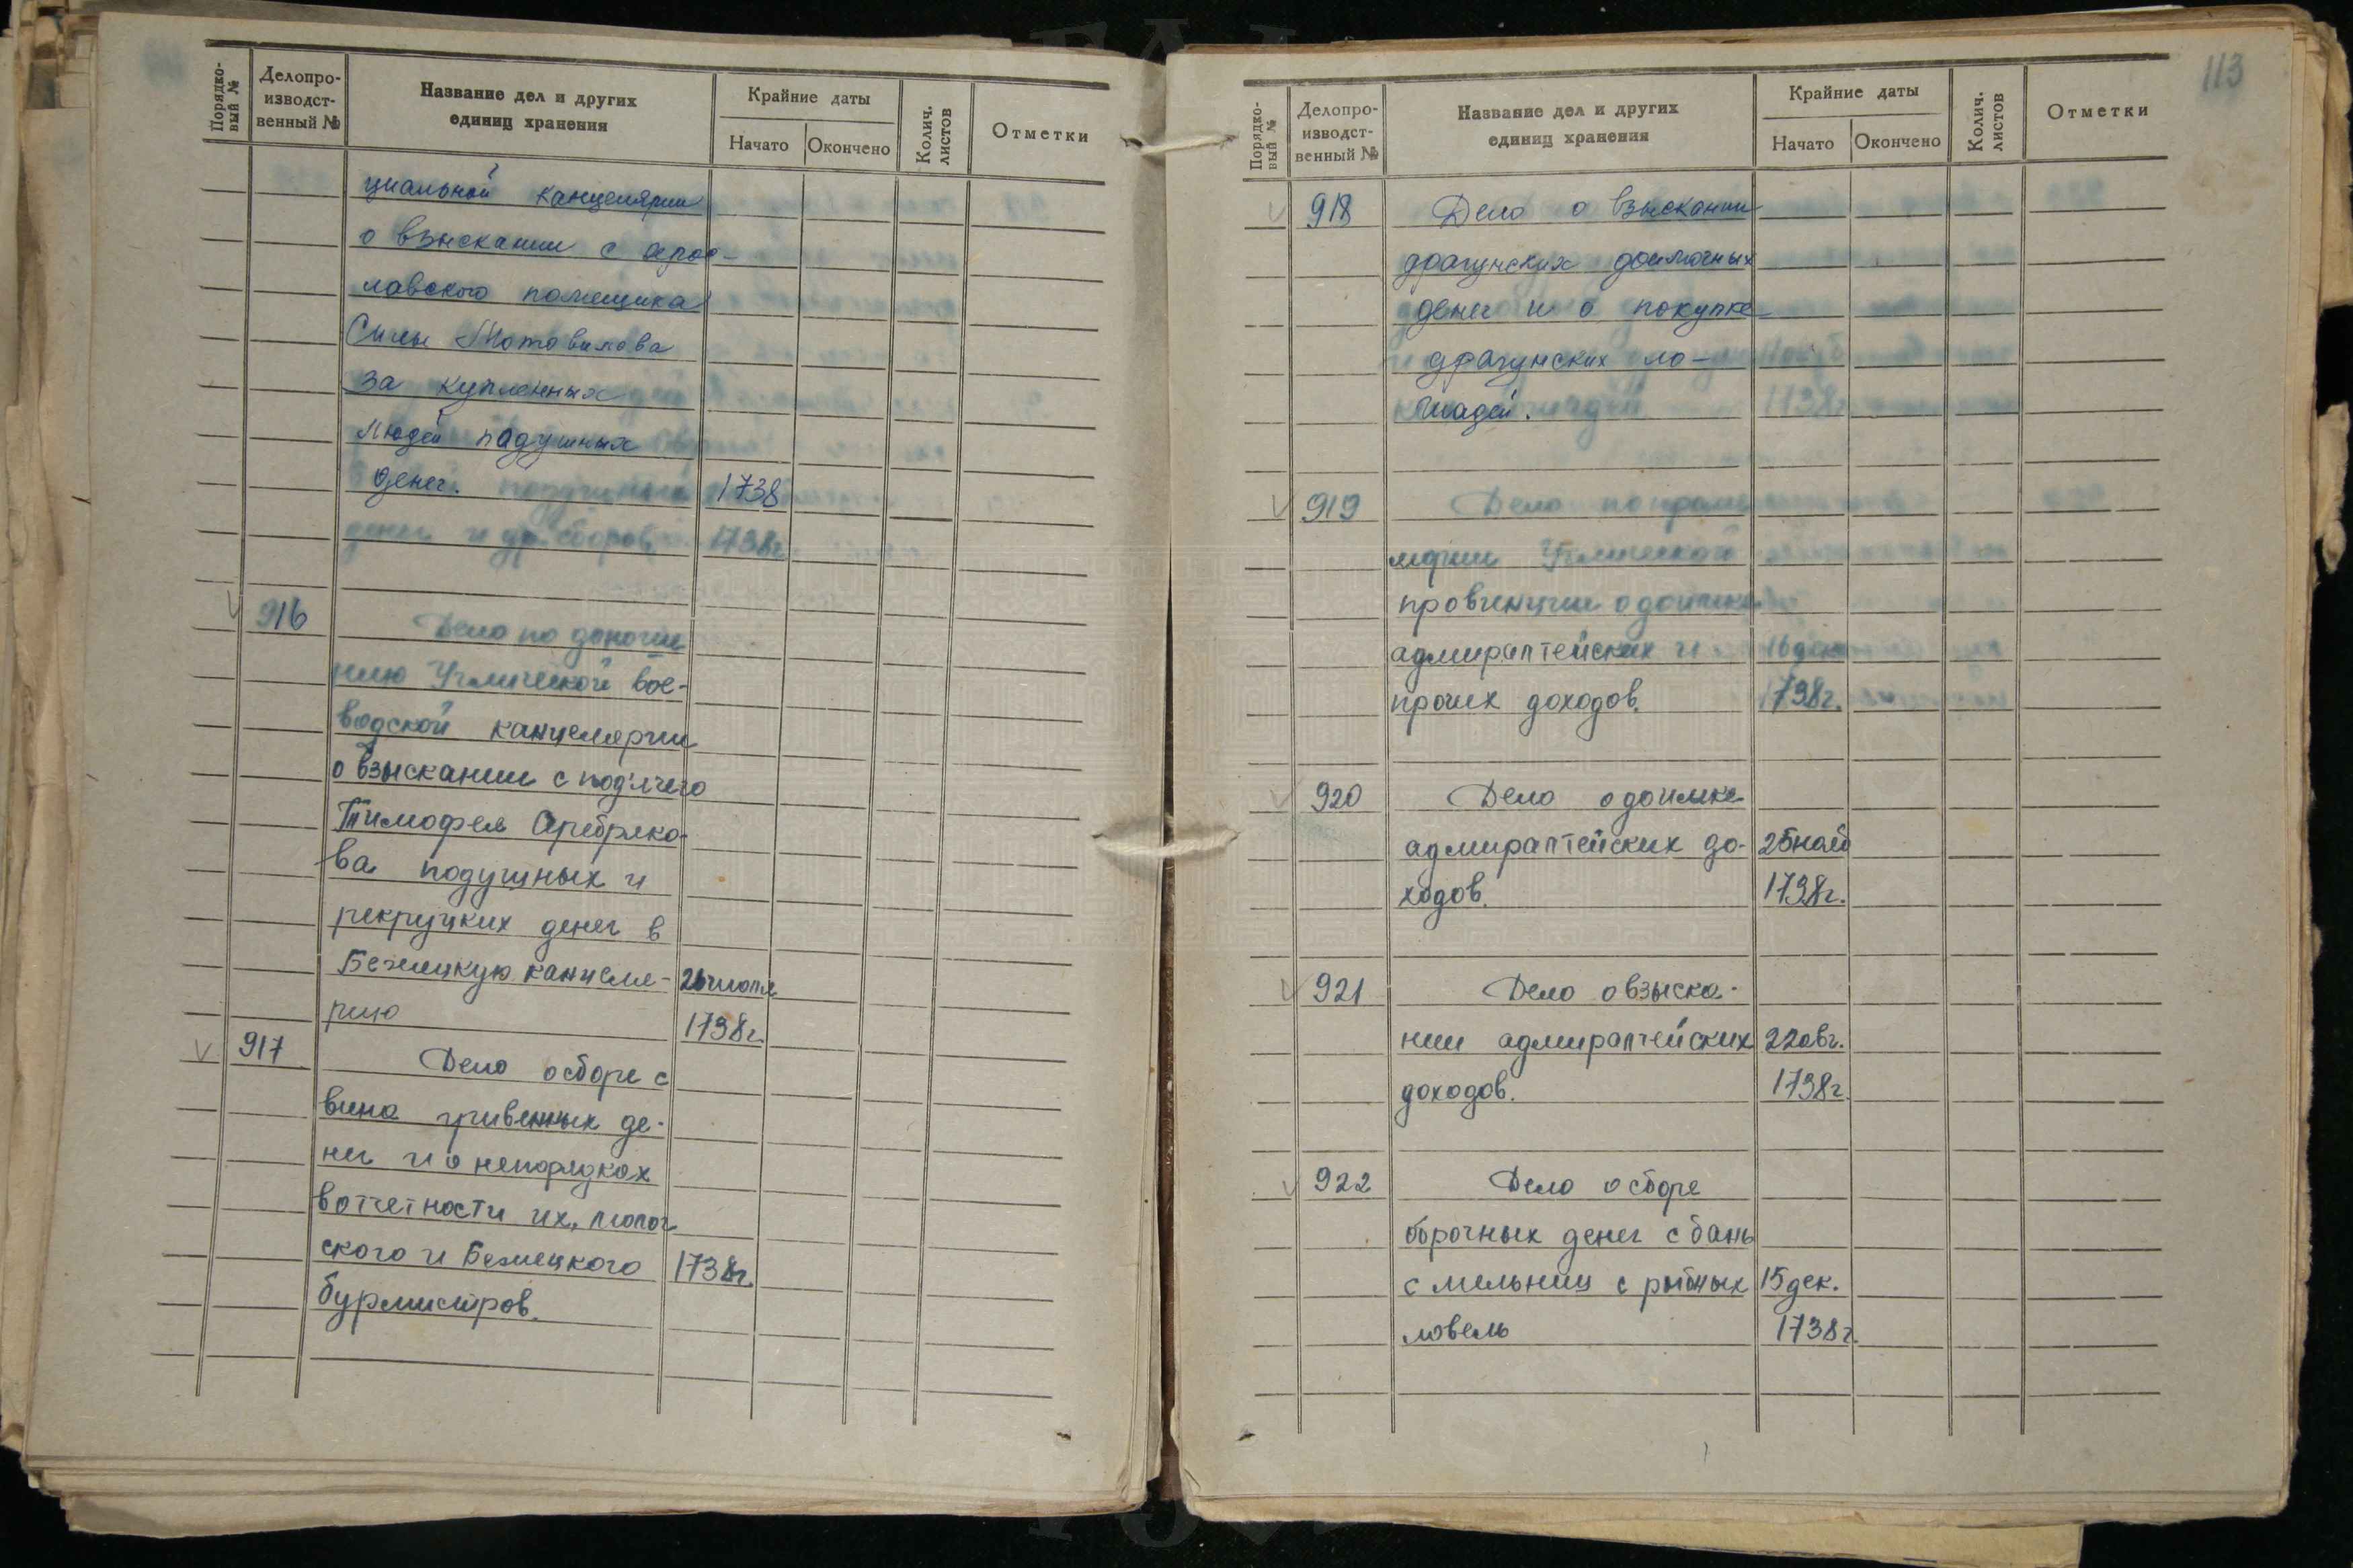 Порядко-
вый №
Делопро-
изводст-
венный №
Название дел и других
единиц хранения
Крайние даты
Начато
Окончено
Колич.
листов
Отметки
циальной канцелярии
о взыскании с
лавского помещика
Силы
за купленных
людей падушных
денег. 1738
1738г.
916 Дело по
нию Угличской вое-
водской канцелярии
о взыскании с под'ячего
Тимофея Серебряко-
ва подушных и
рекруцких денег в
Бежецкую канцеля- 26 июля
рию 1738г.
917 Дело о сборе с
вина гривенных де-
нег и о непорядках
в отчетности их,
ского и Бежецкого 1738г.
бурмистров.
113
Порядко-
вый №
Делопро-
изводст-
венный №
Название дел и других
единиц хранения
Крайние даты
Начато
Окончено
Колич.
листов
Отметки
918 Дело о взыскании
драгунских доимочных
денег и о покупке
драгунских ло-
шадей.
919 Дело
Угличской
провинции о доимке
адмиралтейских и 16 дек
прочих доходов. 1738г.
920 Дело о доимке
адмиралтейских до- 25 нояб
ходов. 1738г.
921 Дело о взыска-
нии адмиралтейских 22 авг.
доходов. 1738г.
922 Дело о сборе
оброчных денег с бань
с мельниц с рыбных 15 дек.
ловель 1738г.